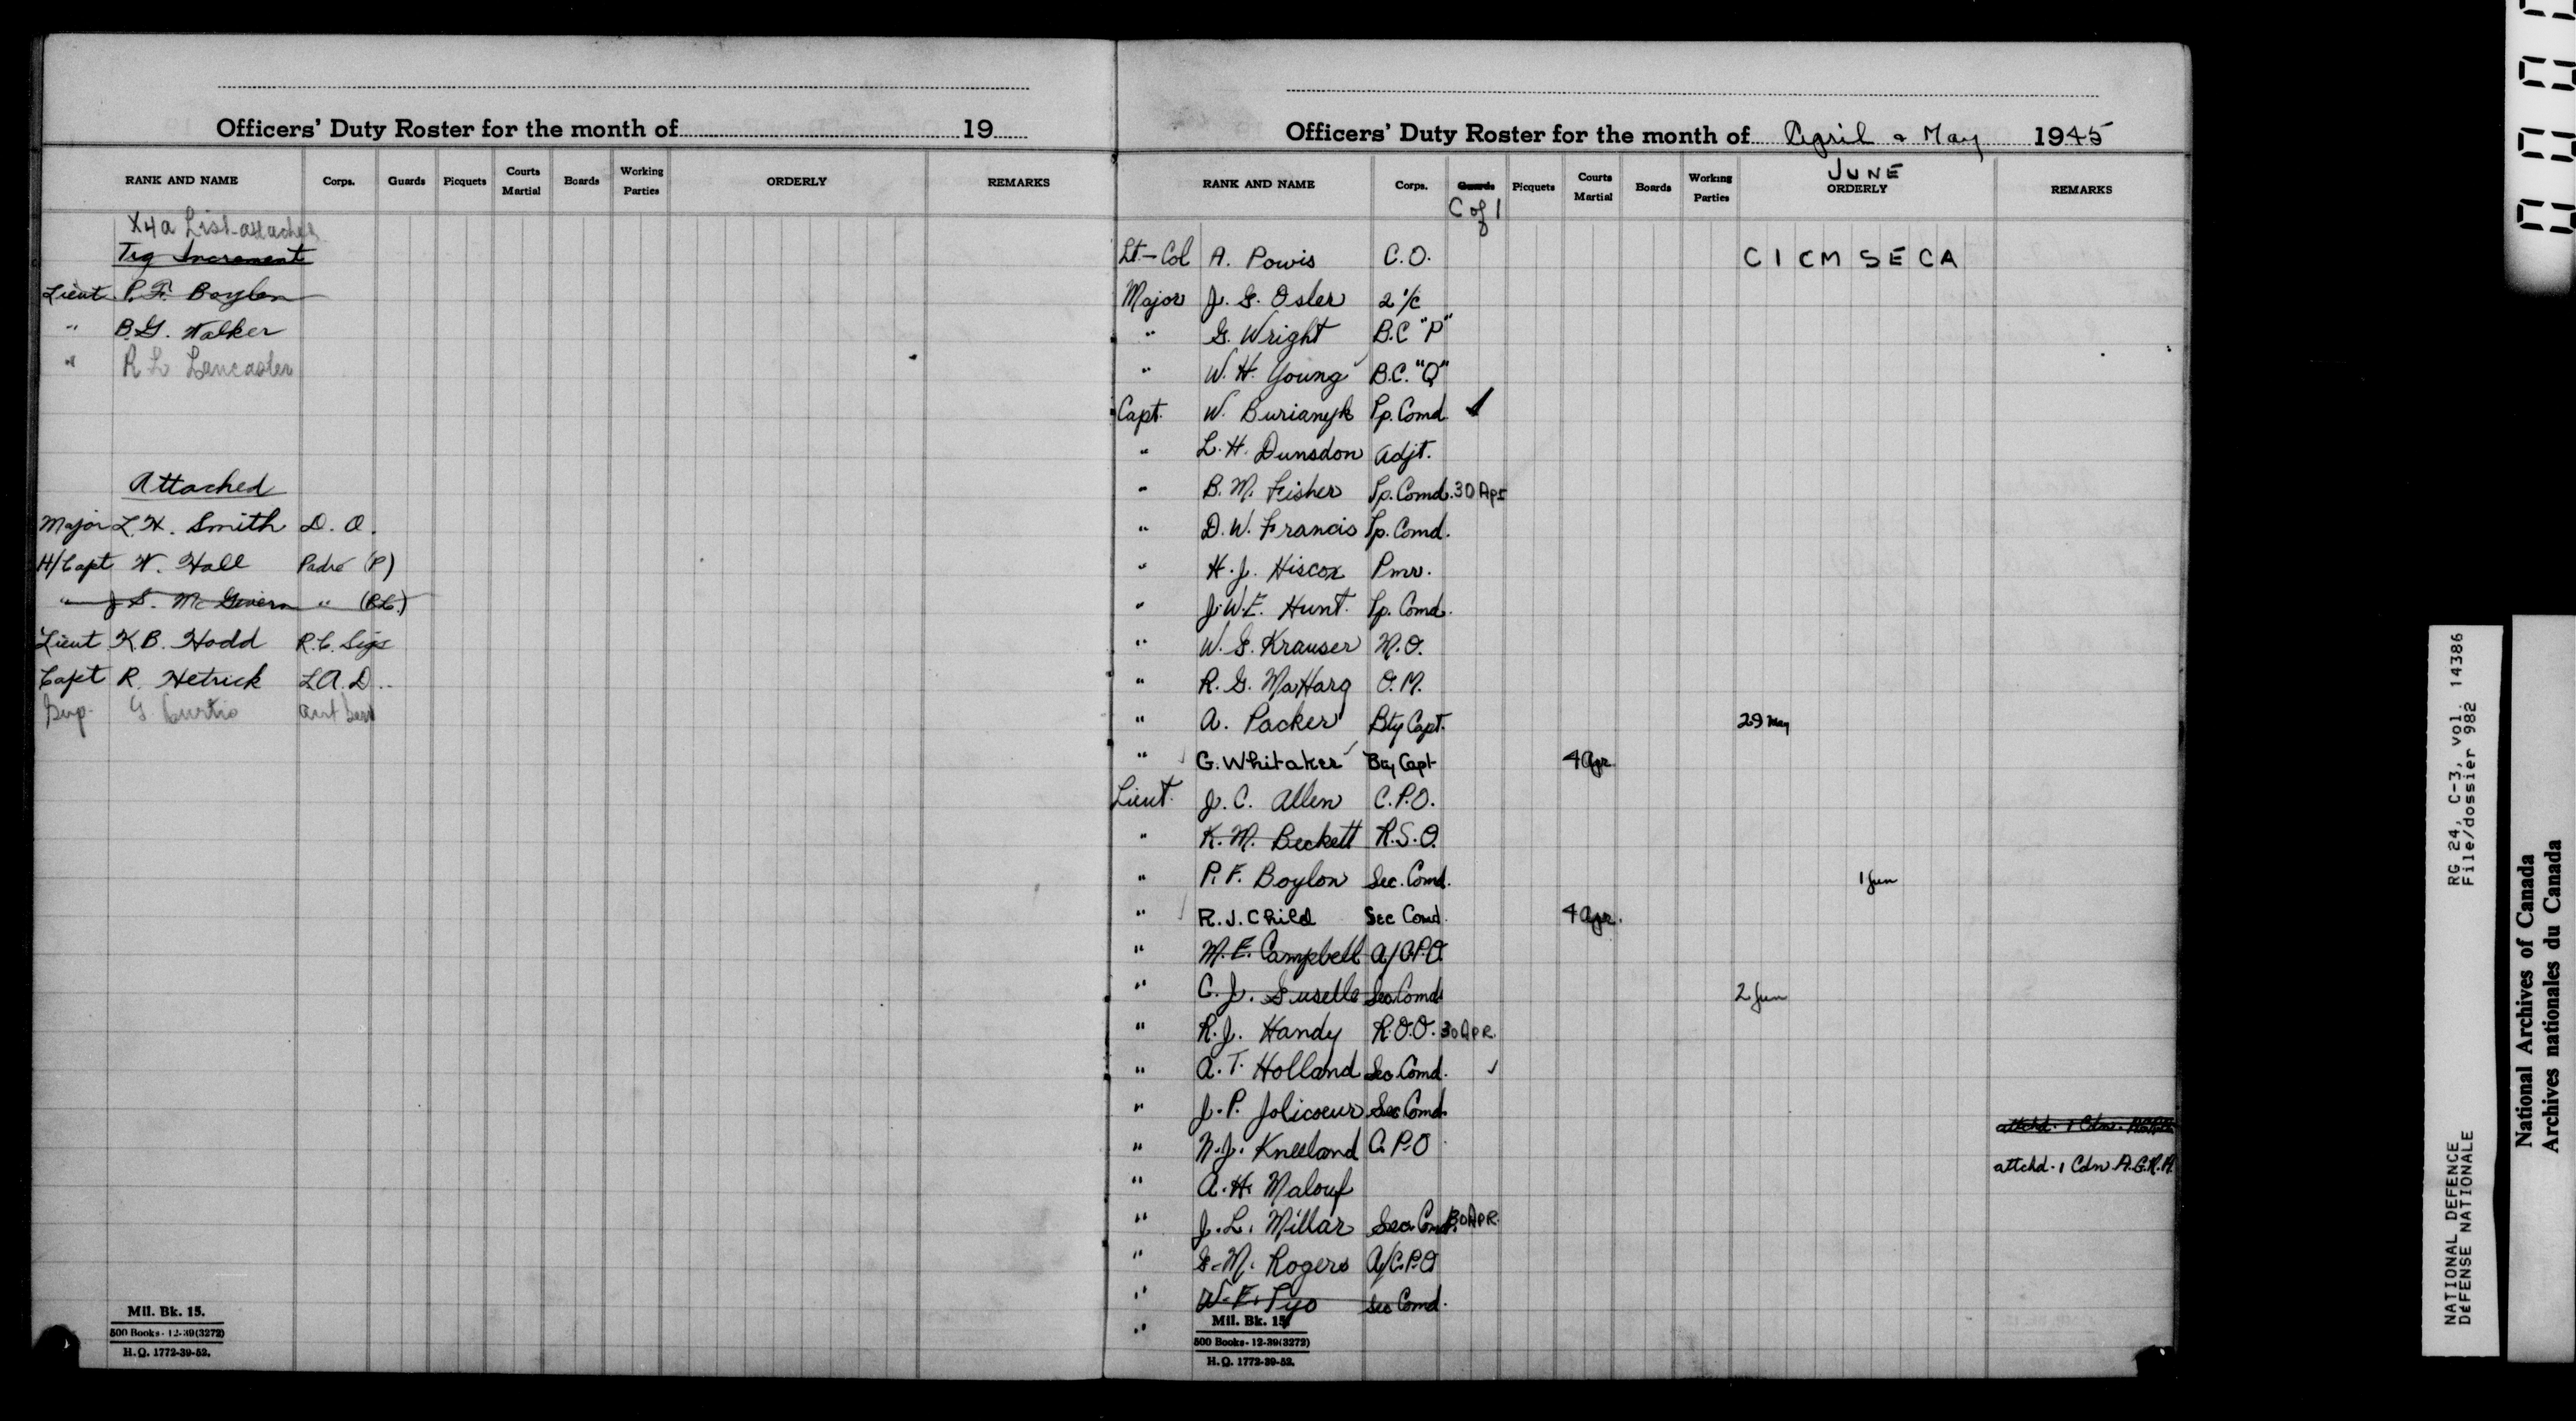 Officers' Duty Roster for the month of 19
RANK AND NAME Corps. Guards Picquets Courts Martial Boards Working Parties ORDERLY REMARKS
X4a List attached
Trg Increment
Lieut P.F. Boylon
" B.G. Walker
" R L Lancaster
Attached
Major L.H. Smith D. O.
H/Capt W. Hall Padre (P)
" J S. McGivern " (R.C.)
Lieut K.B. Hodd R.C. Sigs
Capt R. Hetrick L.A.D.
Sup. G Curtis
Mil. Bk. 15.
500 Books - 12-39(3272)
H.Q. 1772-39-52.
Officers' Duty Roster for the month of April & May 1945
RANK AND NAME Corps. Guards C of I Picquets Courts Martial Boards Working Parties JUNE ORDERLY REMARKS
Lt-Col A. Powis C.O. C I C M S E C A
Major J. G. Osler 2 i/c
" G. Wright B.C "P"
" W. H. Young B.C. "Q"
Capt. W. Burianyk Tp. Comd ✓
" L. H. Dunsdon Adjt.
" B. M. Fisher Tp. Comd. 30 Apr
" D. W. Francis Tp. Comd.
" H. J. Hiscox Pmr.
" J. W. E. Hunt. Tp. Comd.
" W. G. Krauser M.O.
" R. G. MaHarg Q.M.
" A. Packer Bty Capt. 29 May
" G. Whitaker Bty Capt 4 Apr.
Lieut. J. C. Allen C.P.O.
" K. M. Beckett R.S.O.
" P. F. Boylon Sec. Comd. 1 Jun
" R. J. Child Sec Comd. 4 Apr.
" M. E. Campbell A/C.P.O.
" C. J. Guselle Sec Comd 2 Jun
" R. J. Handy R.O.O. 30 APR.
" A. T. Holland Sec Comd. ✓
" J. P. Jolicoeur Sec Comd.
attchd. 1 Cdn. A.G.R.A.
" N. J. Kneeland C.P.O
attchd. 1 Cdn A.G.R.A.
" A. H. Malouf
" J. L. Millar Sec Comd. 30 APR.
" G. M. Rogers A/C.P.O
" W. E. Tyo Sec Comd.
"
Mil. Bk. 15.
500 Books - 12-39(3272)
H.Q. 1772-39-52.
NATIONAL DEFENCE RG 24, C-3, vol. 14386
DÉFENSE NATIONALE File/dossier 982
National Archives of Canada
Archives nationales du Canada